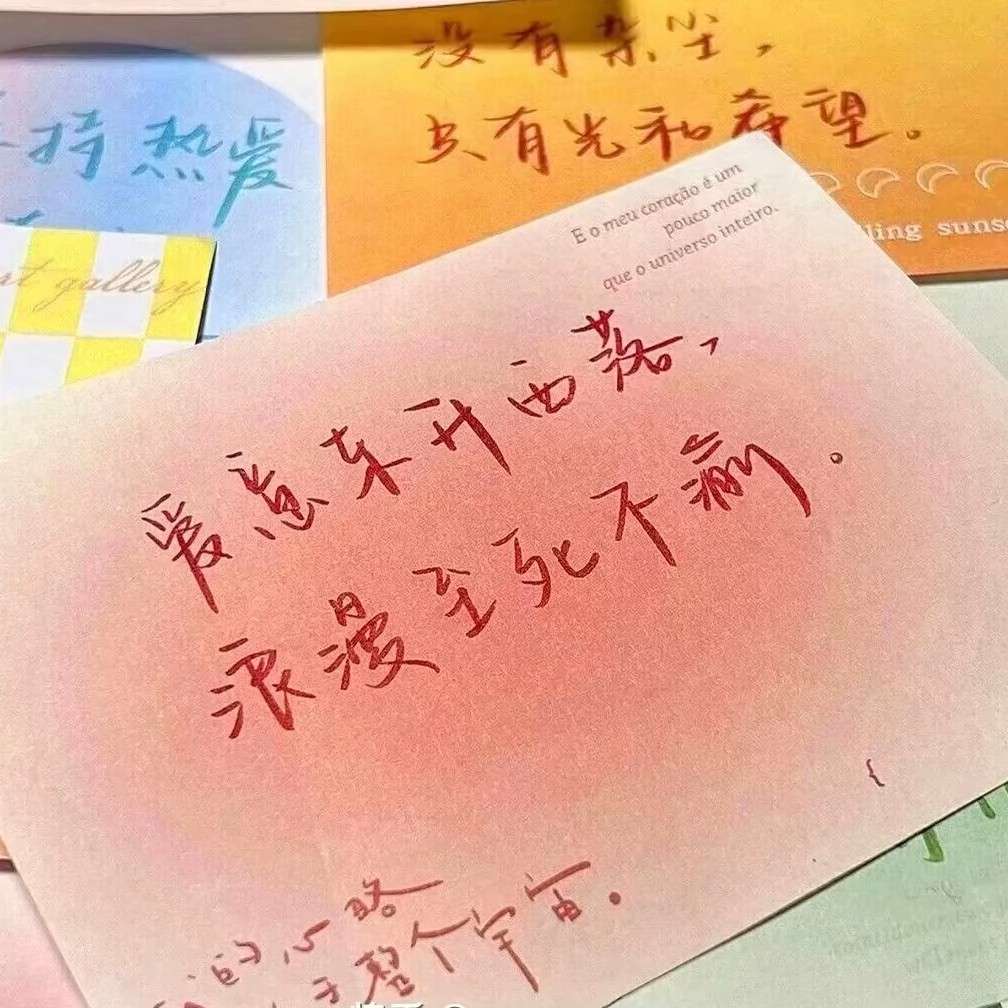 没有杂尘，
只有光和希望。
持热爱
art gallery
E o meu coração é um
pouco maior
que o universo inteiro.
爱意东升西落，
浪漫至死不渝。
的心略
于整个宇宙。